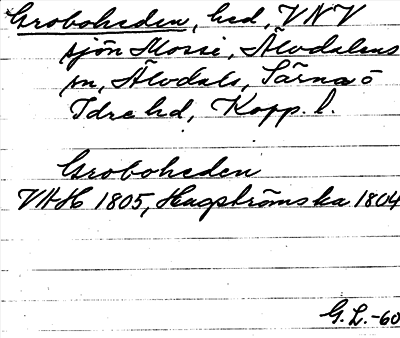 Groboheden, hed, VNV
sjön Mossi, Älvdalens
sn, Älvdals, Särna o
Idre hd, Kopp. l.
Groboheden
VAH 1805, Hagströmska 1804
G. L. -60